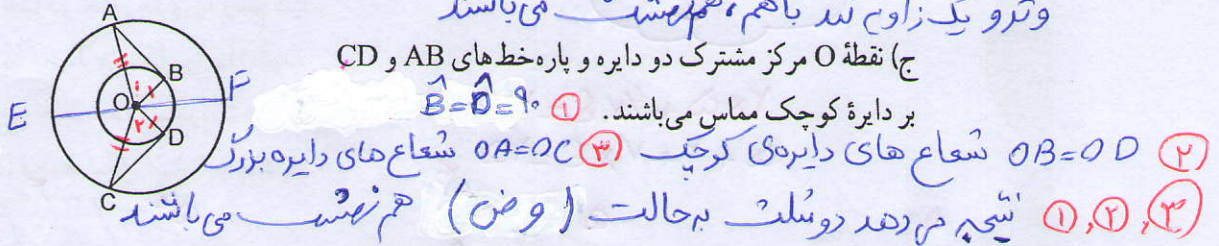 وترو یک زاویه تند باهم، هم‌نهشت می‌باشند
ج) نقطهٔ O مرکز مشترک دو دایره و پاره‌خط‌های AB و CD
بر دایرهٔ کوچک مماس می‌باشند. ① B̂=D̂=۹۰
② OB=OD شعاع های دایره‌ی کوچک ③ OA=OC شعاع های دایره بزرگ
③,②,① نتیجه می دهد دو مثلث به حالت (وض) هم نهشت می باشند
A
B
O
۱ ۱
E
F
۲ ۲
D
C